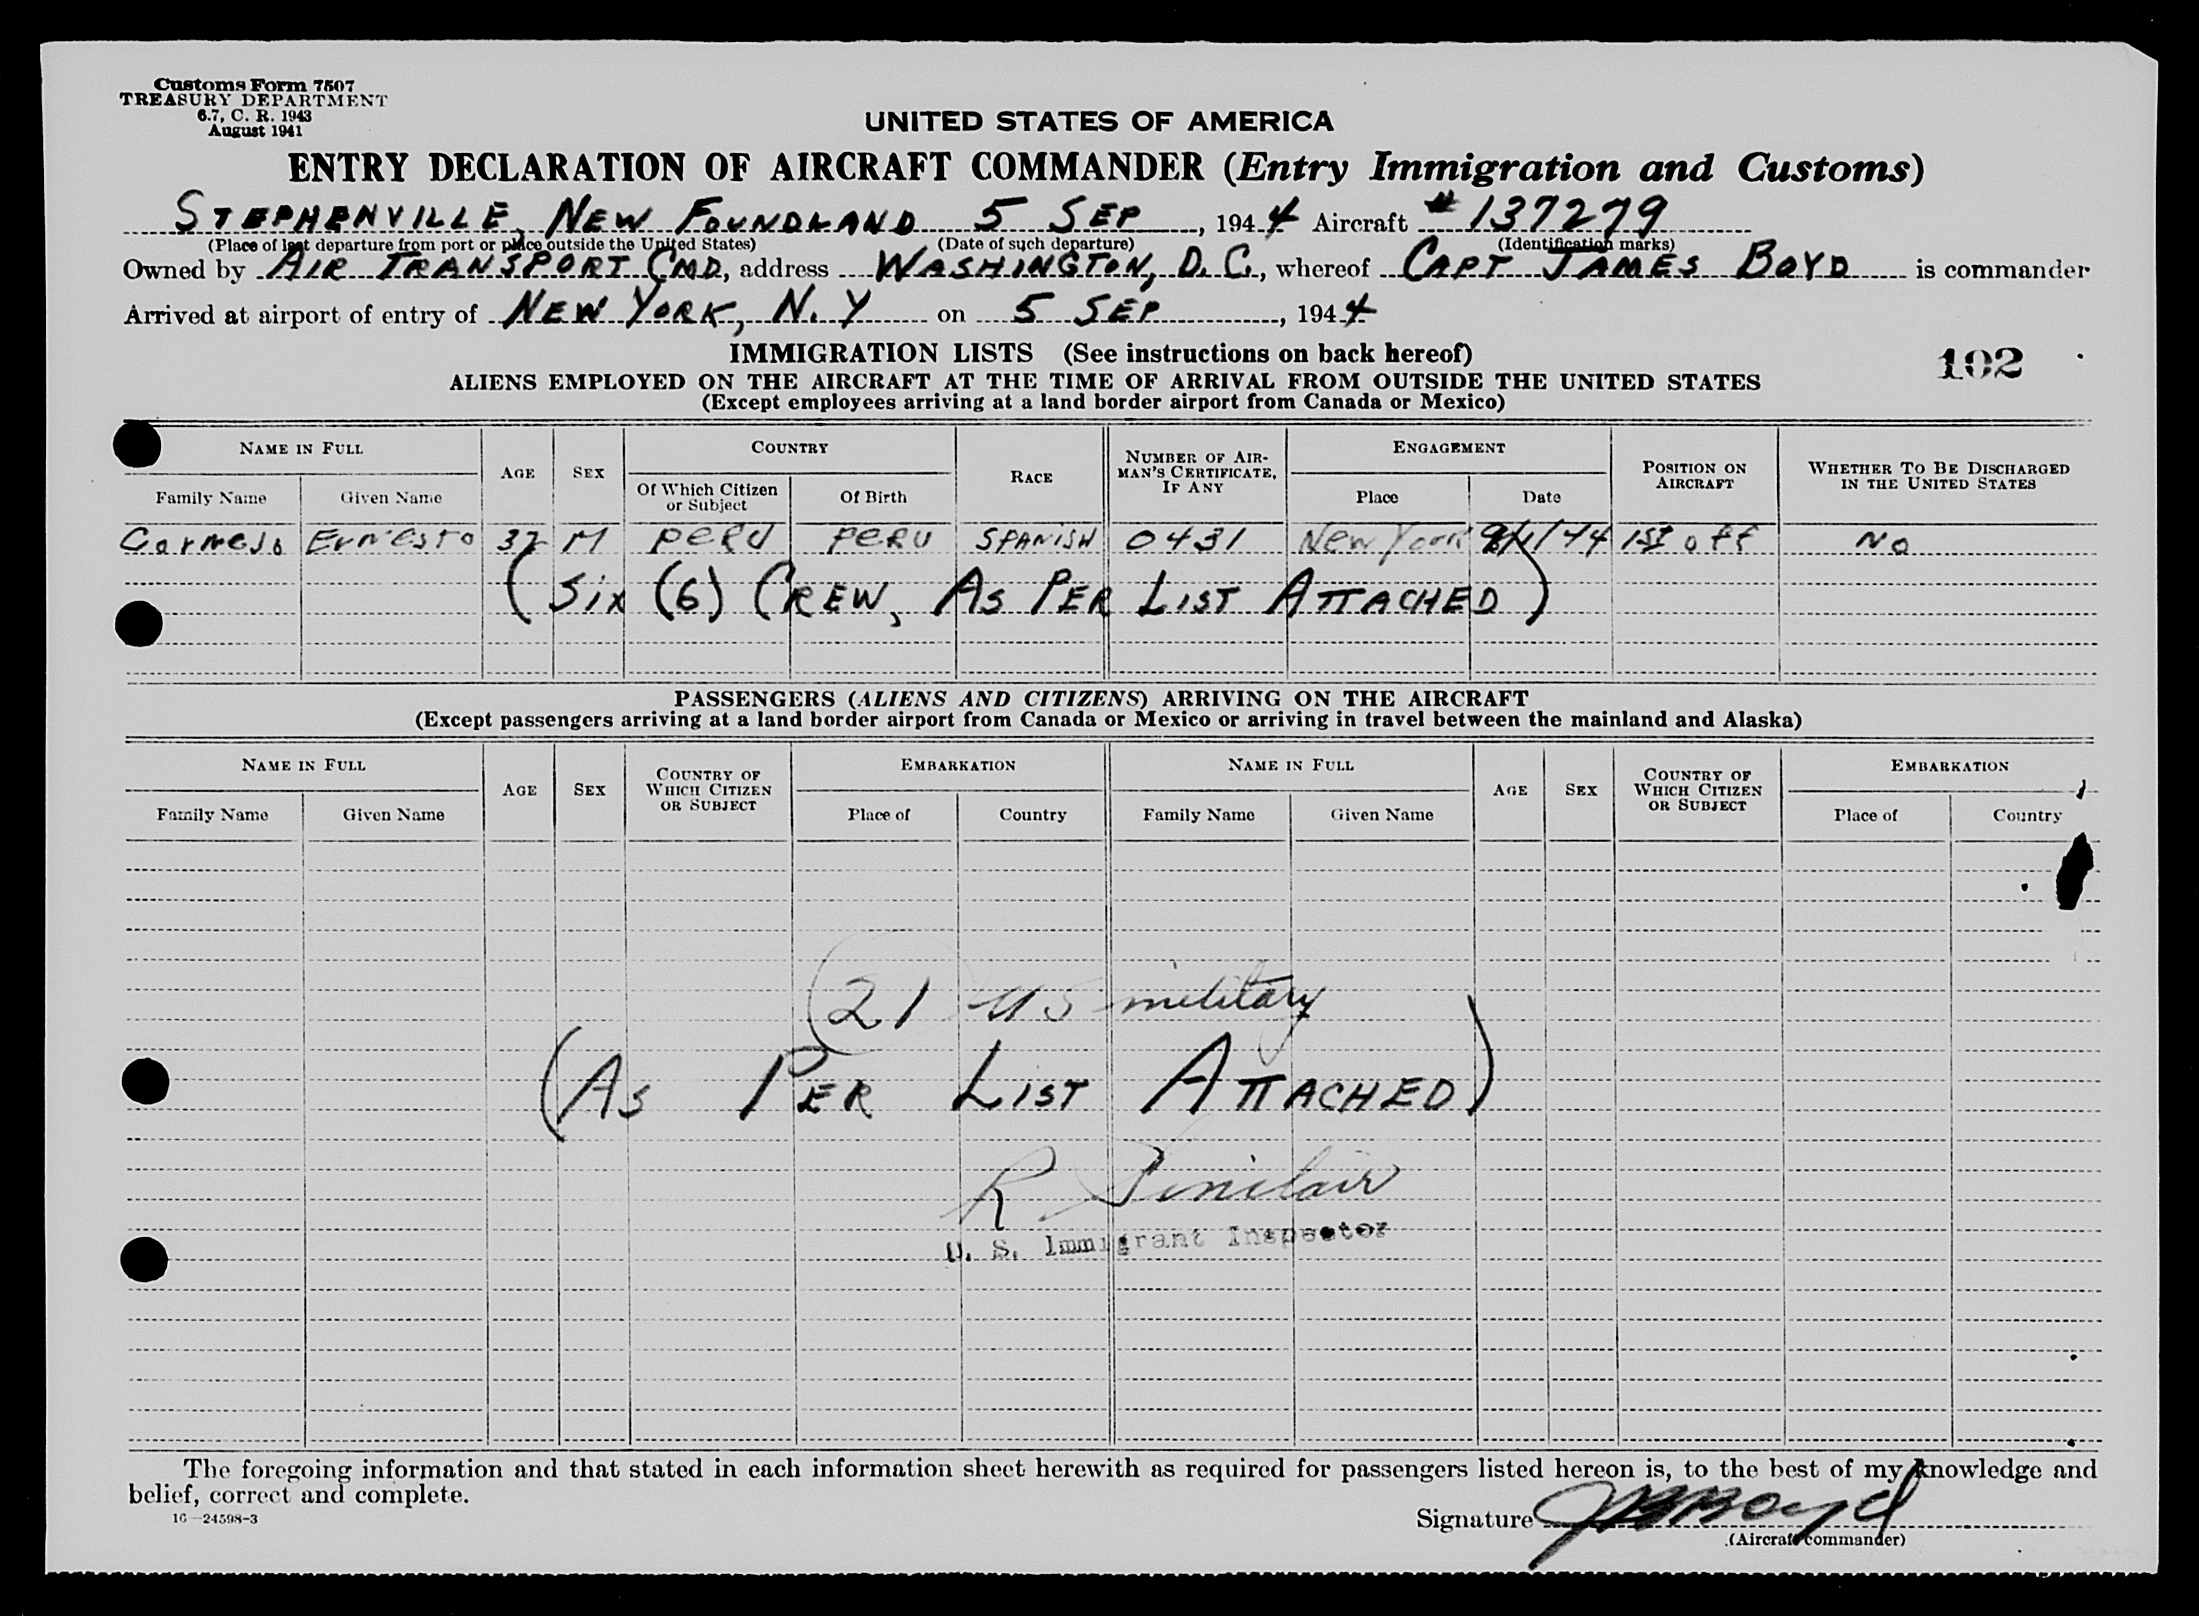 Customs Form 7507
TREASURY DEPARTMENT
6.7, C. R. 1943
August 1941
UNITED STATES OF AMERICA
ENTRY DECLARATION OF AIRCRAFT COMMANDER (Entry Immigration and Customs)
STEPHENVILLE, NEW FOUNDLAND 5 SEP, 1944 Aircraft # 137279
(Place of last departure from port or place outside the United States) (Date of such departure) (Identification marks)
Owned by AIR TRANSPORT CMD, address WASHINGTON, D. C., whereof CAPT JAMES BOYD is commander
Arrived at airport of entry of NEW YORK, N. Y on 5 SEP, 1944
IMMIGRATION LISTS (See instructions on back hereof)
102
ALIENS EMPLOYED ON THE AIRCRAFT AT THE TIME OF ARRIVAL FROM OUTSIDE THE UNITED STATES
(Except employees arriving at a land border airport from Canada or Mexico)
NAME IN FULL AGE SEX COUNTRY RACE NUMBER OF AIRMAN'S CERTIFICATE, IF ANY ENGAGEMENT POSITION ON AIRCRAFT WHETHER TO BE DISCHARGED IN THE UNITED STATES
Family Name Given Name Of Which Citizen or Subject Of Birth Place Date
Ernesto M PERU PERU SPANISH 0431 New York /44 1ST off NO
(SIX (6) CREW, AS PER LIST ATTACHED)
PASSENGERS (ALIENS AND CITIZENS) ARRIVING ON THE AIRCRAFT
(Except passengers arriving at a land border airport from Canada or Mexico or arriving in travel between the mainland and Alaska)
NAME IN FULL AGE SEX COUNTRY OF WHICH CITIZEN OR SUBJECT EMBARKATION NAME IN FULL AGE SEX COUNTRY OF WHICH CITIZEN OR SUBJECT EMBARKATION
Family Name Given Name Place of Country Family Name Given Name Place of Country
21 US military
(AS PER LIST ATTACHED)
R Sinclair
U. S. Immigrant Inspector
The foregoing information and that stated in each information sheet herewith as required for passengers listed hereon is, to the best of my knowledge and
belief, correct and complete.
16—24598-3
Signature
(Aircraft commander)